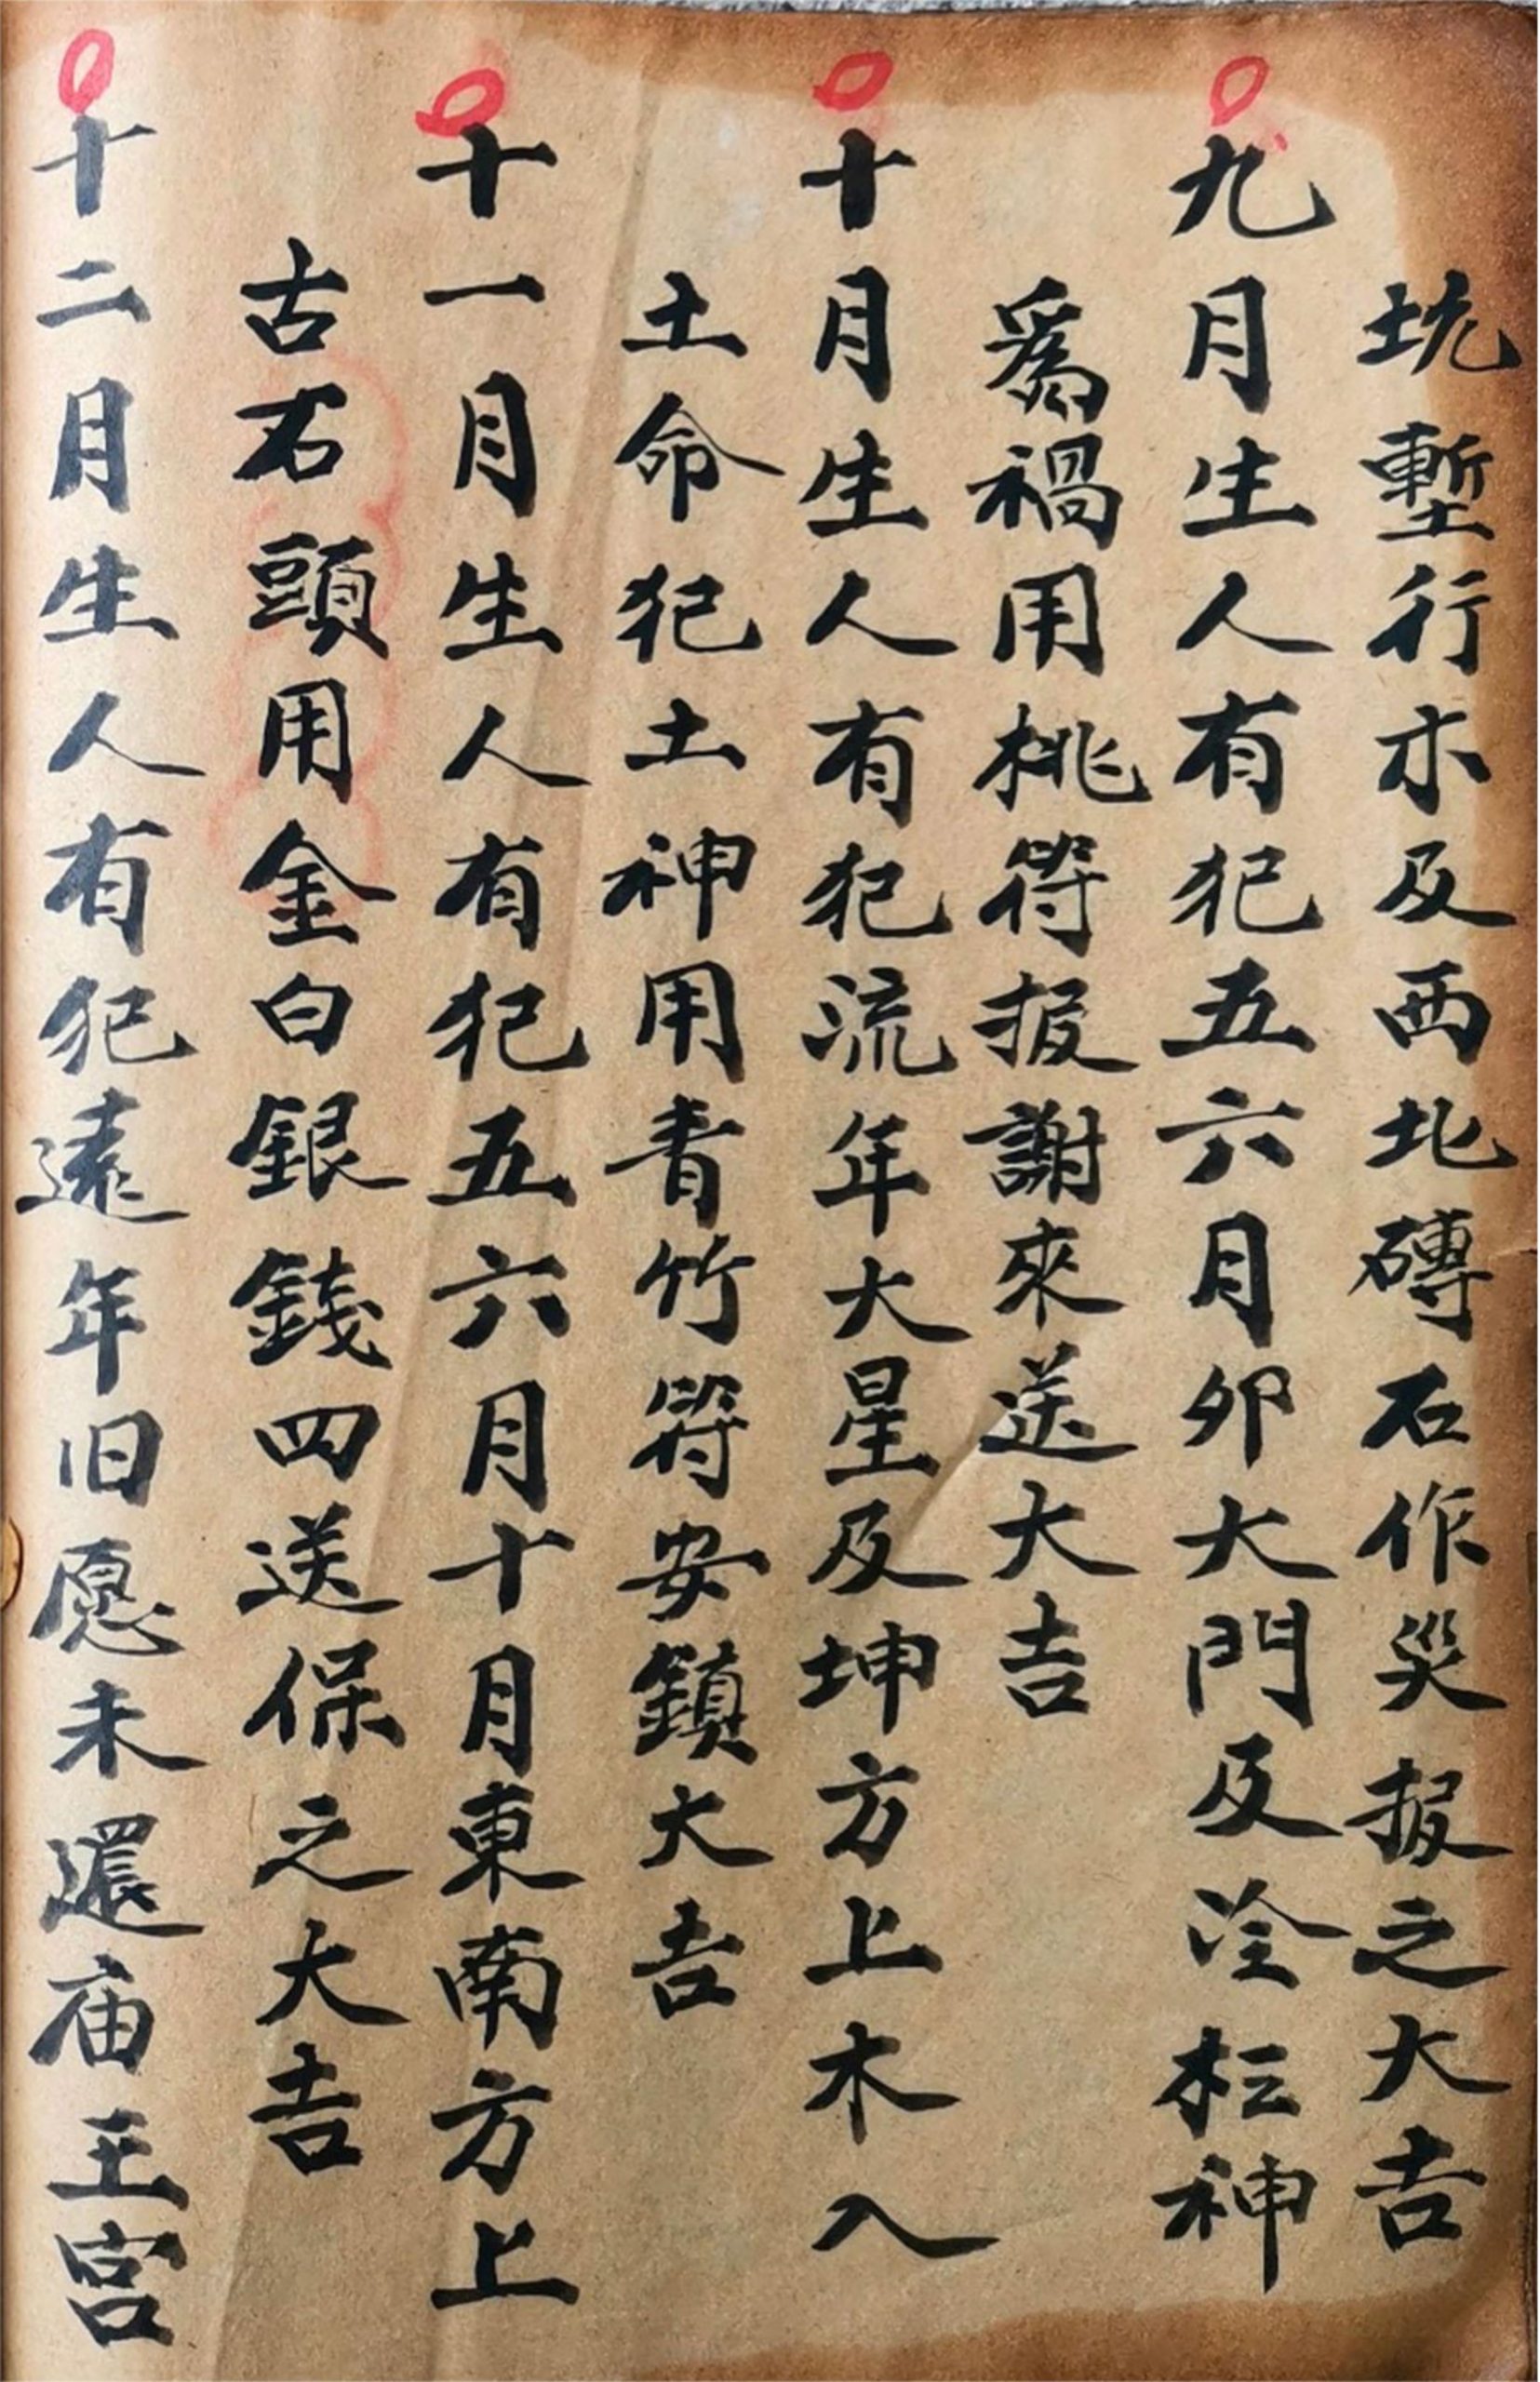 坑塹行木及西北磚石作災报之大吉
九月生人有犯五六月卯大門及冷枟神
爲禍用桃符报謝來送大吉
十月生人有犯流年大星及坤方上木入
土命犯土神用青竹符安鎮大吉
十一月生人有犯五六月十月東南方上
古石頭用金白銀錢四送保之大吉
十二月生人有犯遠年旧愿未還庙王宫